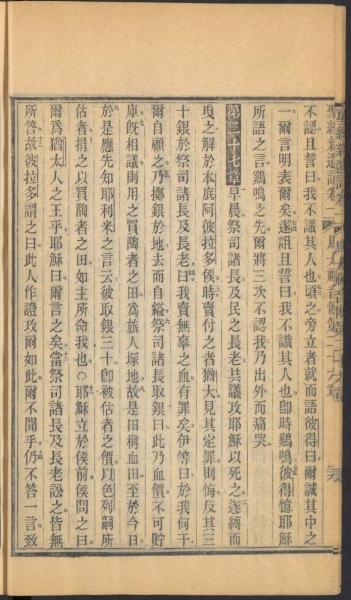 不認且誓曰我不識其人也頃之旁立者就而語彼得曰爾誠其中之
一爾言明表爾矣遂詛且誓曰我不識其人也即時鷄鳴彼得憶耶穌
所語之言鷄鳴之先爾將三次不認我乃出外而痛哭
第二十七章早晨祭司諸長及民之長老共議攻耶穌以死之遂縛而
曳之解於本底阿彼拉多侯時賣付之者猶大見其定罪則悔反其三
十銀於祭司諸長及長老曰我賣無辜之血有罪矣伊等曰於我何干
爾自顧之乃擲銀於地去而自縊祭司諸長取銀曰此乃血價不可貯
庫旣相議則用之買陶者之田為旅人塚地故是田稱血田至於今日
於是應先知耶利米之言云彼取銀三十即被估者之價以色列嗣所
估者捐之以買陶者之田如主所命我也○耶穌立於侯前侯問之曰
爾為猶太人之王乎耶穌曰爾言之矣當祭司諸長及長老訟之皆無
所答故彼拉多謂之曰此人作證攻爾如此爾不聞乎仍不答一言致